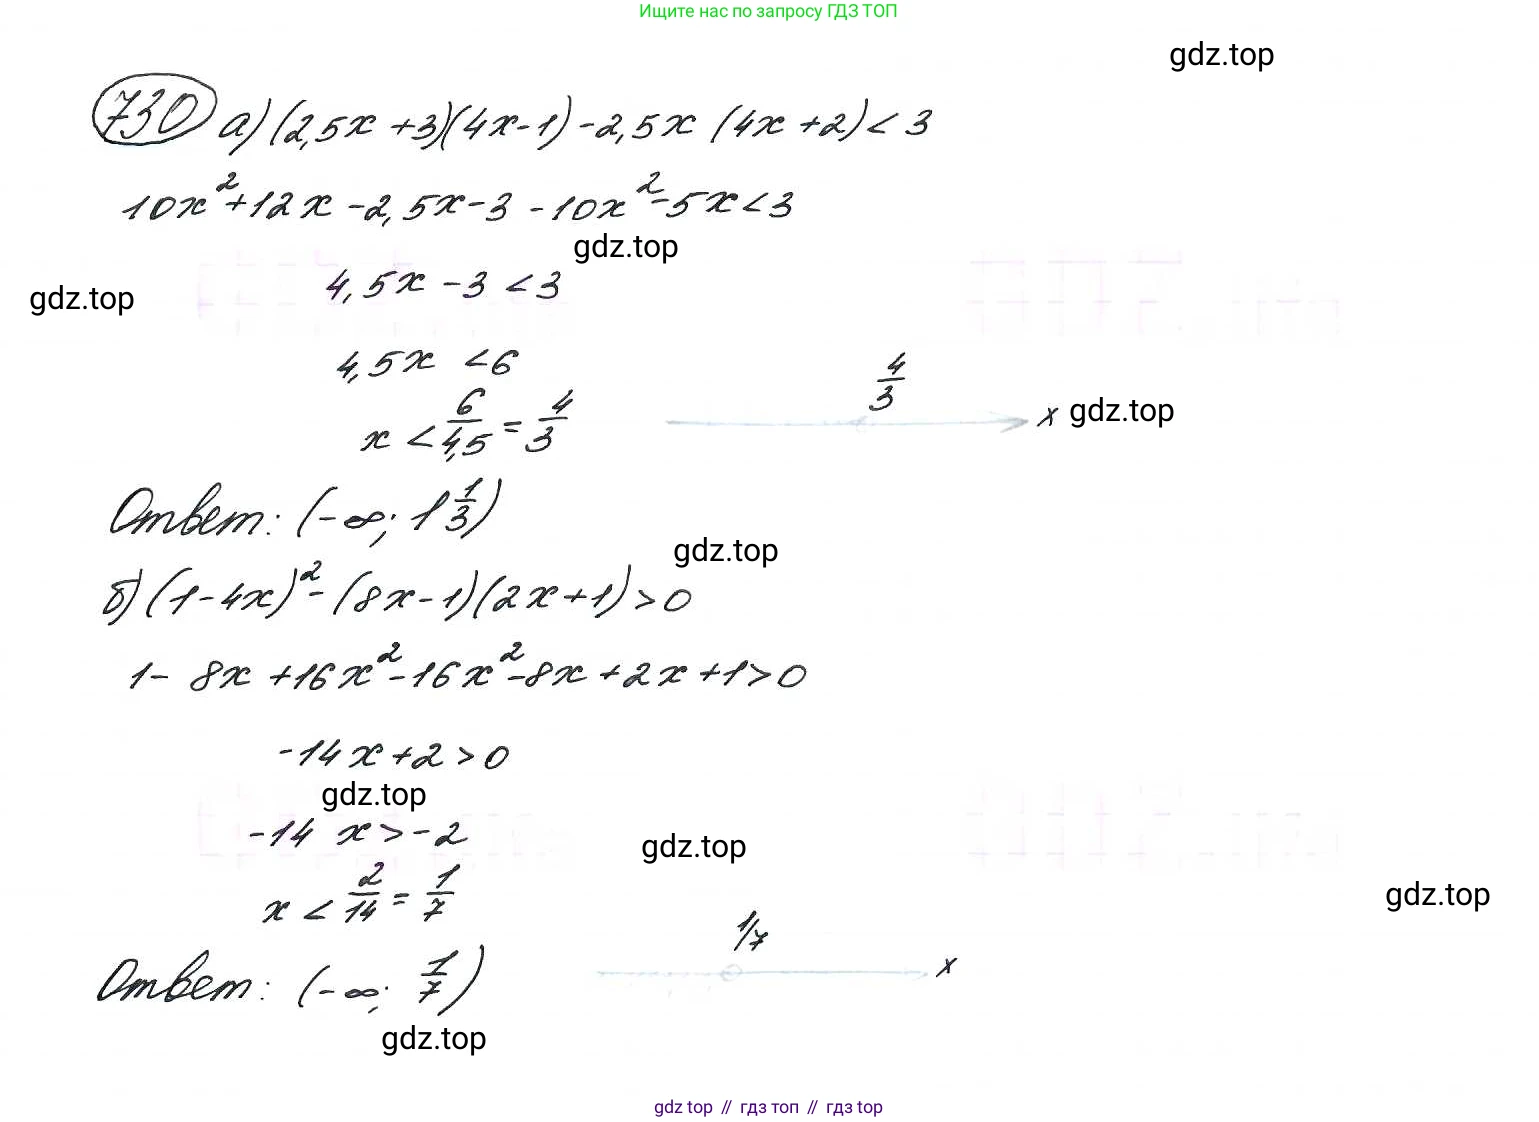 Ищите нас по запросу ГДЗ ТОП
gdz.top
730 а) (2,5x + 3)(4x - 1) - 2,5x (4x + 2) < 3
10x² + 12x - 2,5x - 3 - 10x² - 5x < 3
gdz.top
4,5x - 3 < 3
gdz.top
4,5x < 6
x < 6/4,5 = 4/3
4/3
x gdz.top
Ответ: (-∞; 1 1/3)
gdz.top
б) (1 - 4x)² - (8x - 1)(2x + 1) > 0
1 - 8x + 16x² - 16x² - 8x + 2x + 1 > 0
-14x + 2 > 0
gdz.top
-14 x > -2
gdz.top
x < 2/14 = 1/7
gdz.top
1/7
x
Ответ: (-∞; 1/7)
gdz.top
gdz top // гдз топ // гдз.top